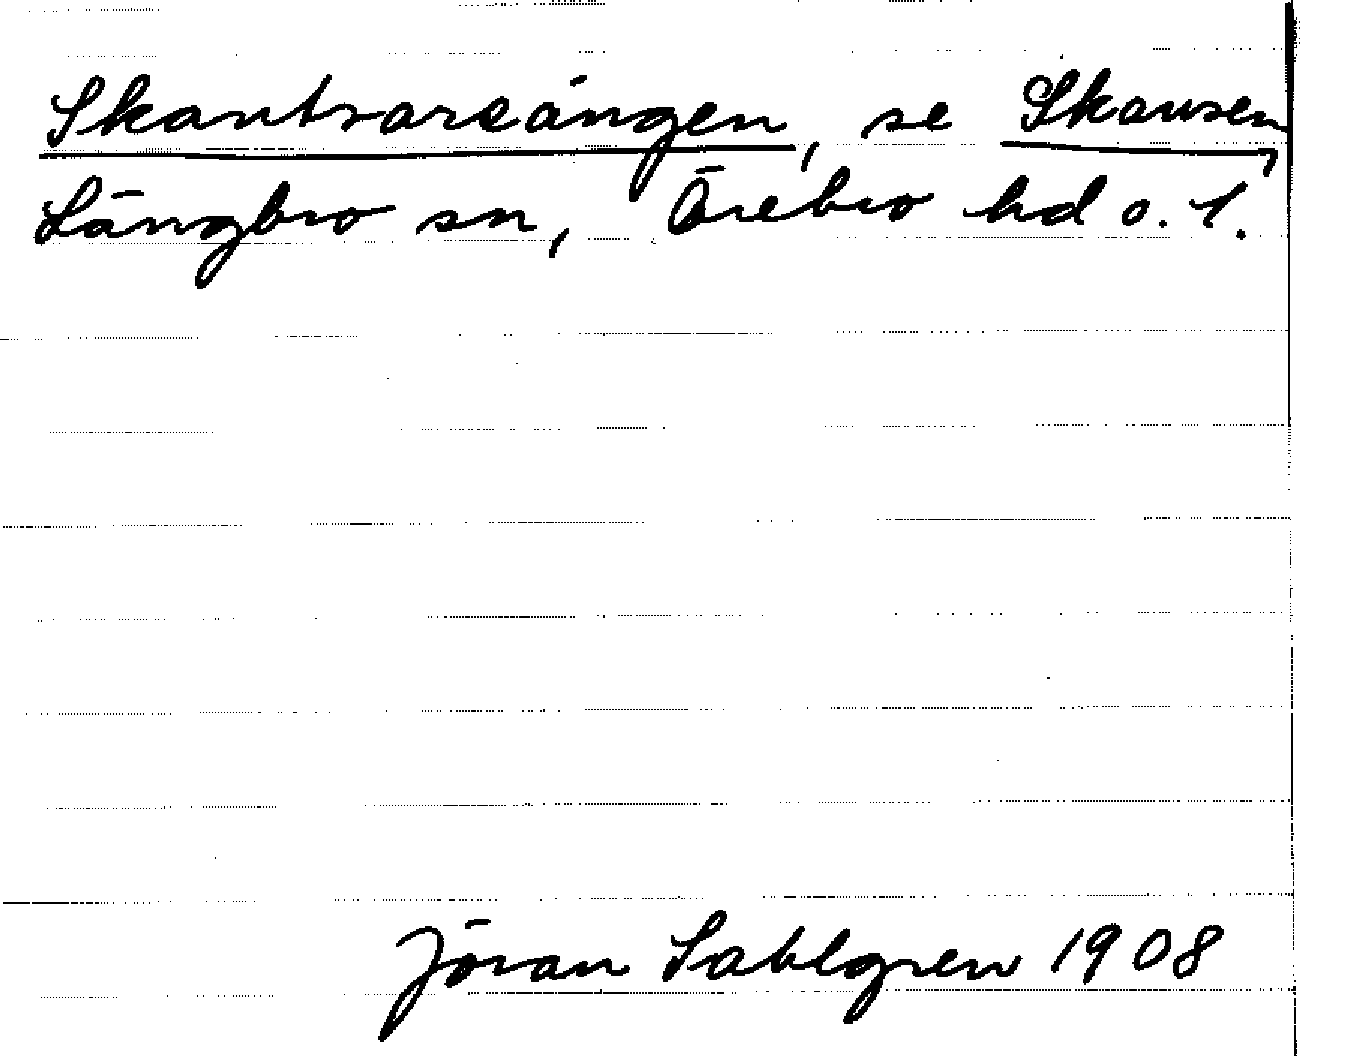 Skantvarsängen, se Skansen,
Längbro sn, Örebro hd o. l.
Jöran Sahlgren 1908